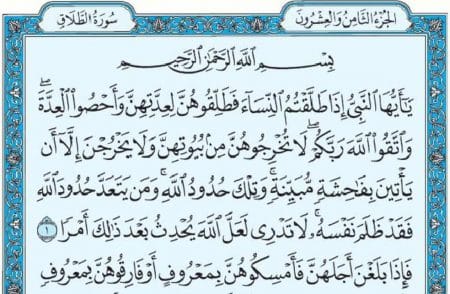 الجُزْءُ الثَّامِنُ وَالعِشْرُونَ
سُورَةُ الطَّلَاقِ
بِسْمِ ٱللَّهِ ٱلرَّحْمَٰنِ ٱلرَّحِيمِ
يَٰٓأَيُّهَا ٱلنَّبِىُّ إِذَا طَلَّقْتُمُ ٱلنِّسَآءَ فَطَلِّقُوهُنَّ لِعِدَّتِهِنَّ وَأَحْصُوا۟ ٱلْعِدَّةَ ۖ
وَٱتَّقُوا۟ ٱللَّهَ رَبَّكُمْ ۖ لَا تُخْرِجُوهُنَّ مِنۢ بُيُوتِهِنَّ وَلَا يَخْرُجْنَ إِلَّآ أَن
يَأْتِينَ بِفَٰحِشَةٍ مُّبَيِّنَةٍ ۚ وَتِلْكَ حُدُودُ ٱللَّهِ ۚ وَمَن يَتَعَدَّ حُدُودَ ٱللَّهِ
فَقَدْ ظَلَمَ نَفْسَهُۥ ۚ لَا تَدْرِى لَعَلَّ ٱللَّهَ يُحْدِثُ بَعْدَ ذَٰلِكَ أَمْرًا ١
فَإِذَا بَلَغْنَ أَجَلَهُنَّ فَأَمْسِكُوهُنَّ بِمَعْرُوفٍ أَوْ فَارِقُوهُنَّ بِمَعْرُوفٍ